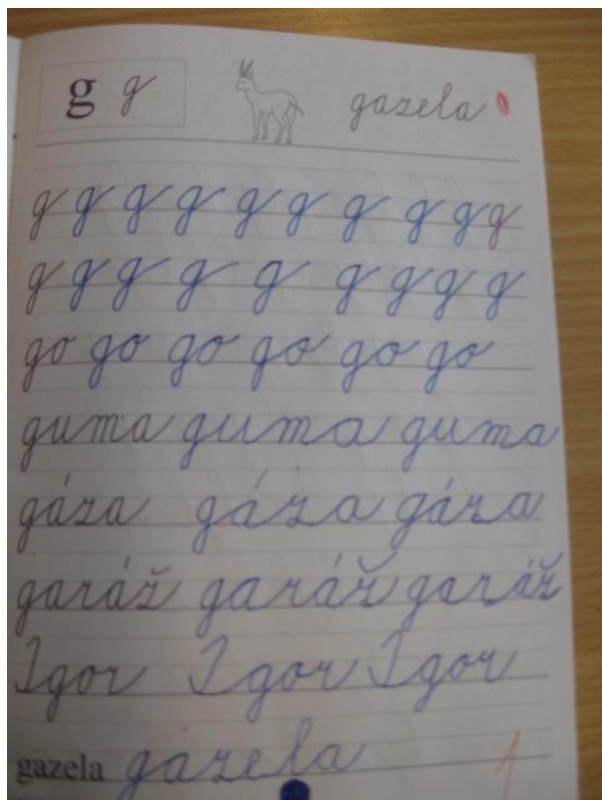 g g gazela
g g g g g g g g g g
g g g g g g g g g
go go go go go go
guma guma guma
gáza gáza gáza
garáž garáž garáž
Igor Igor Igor
gazela gazela 1